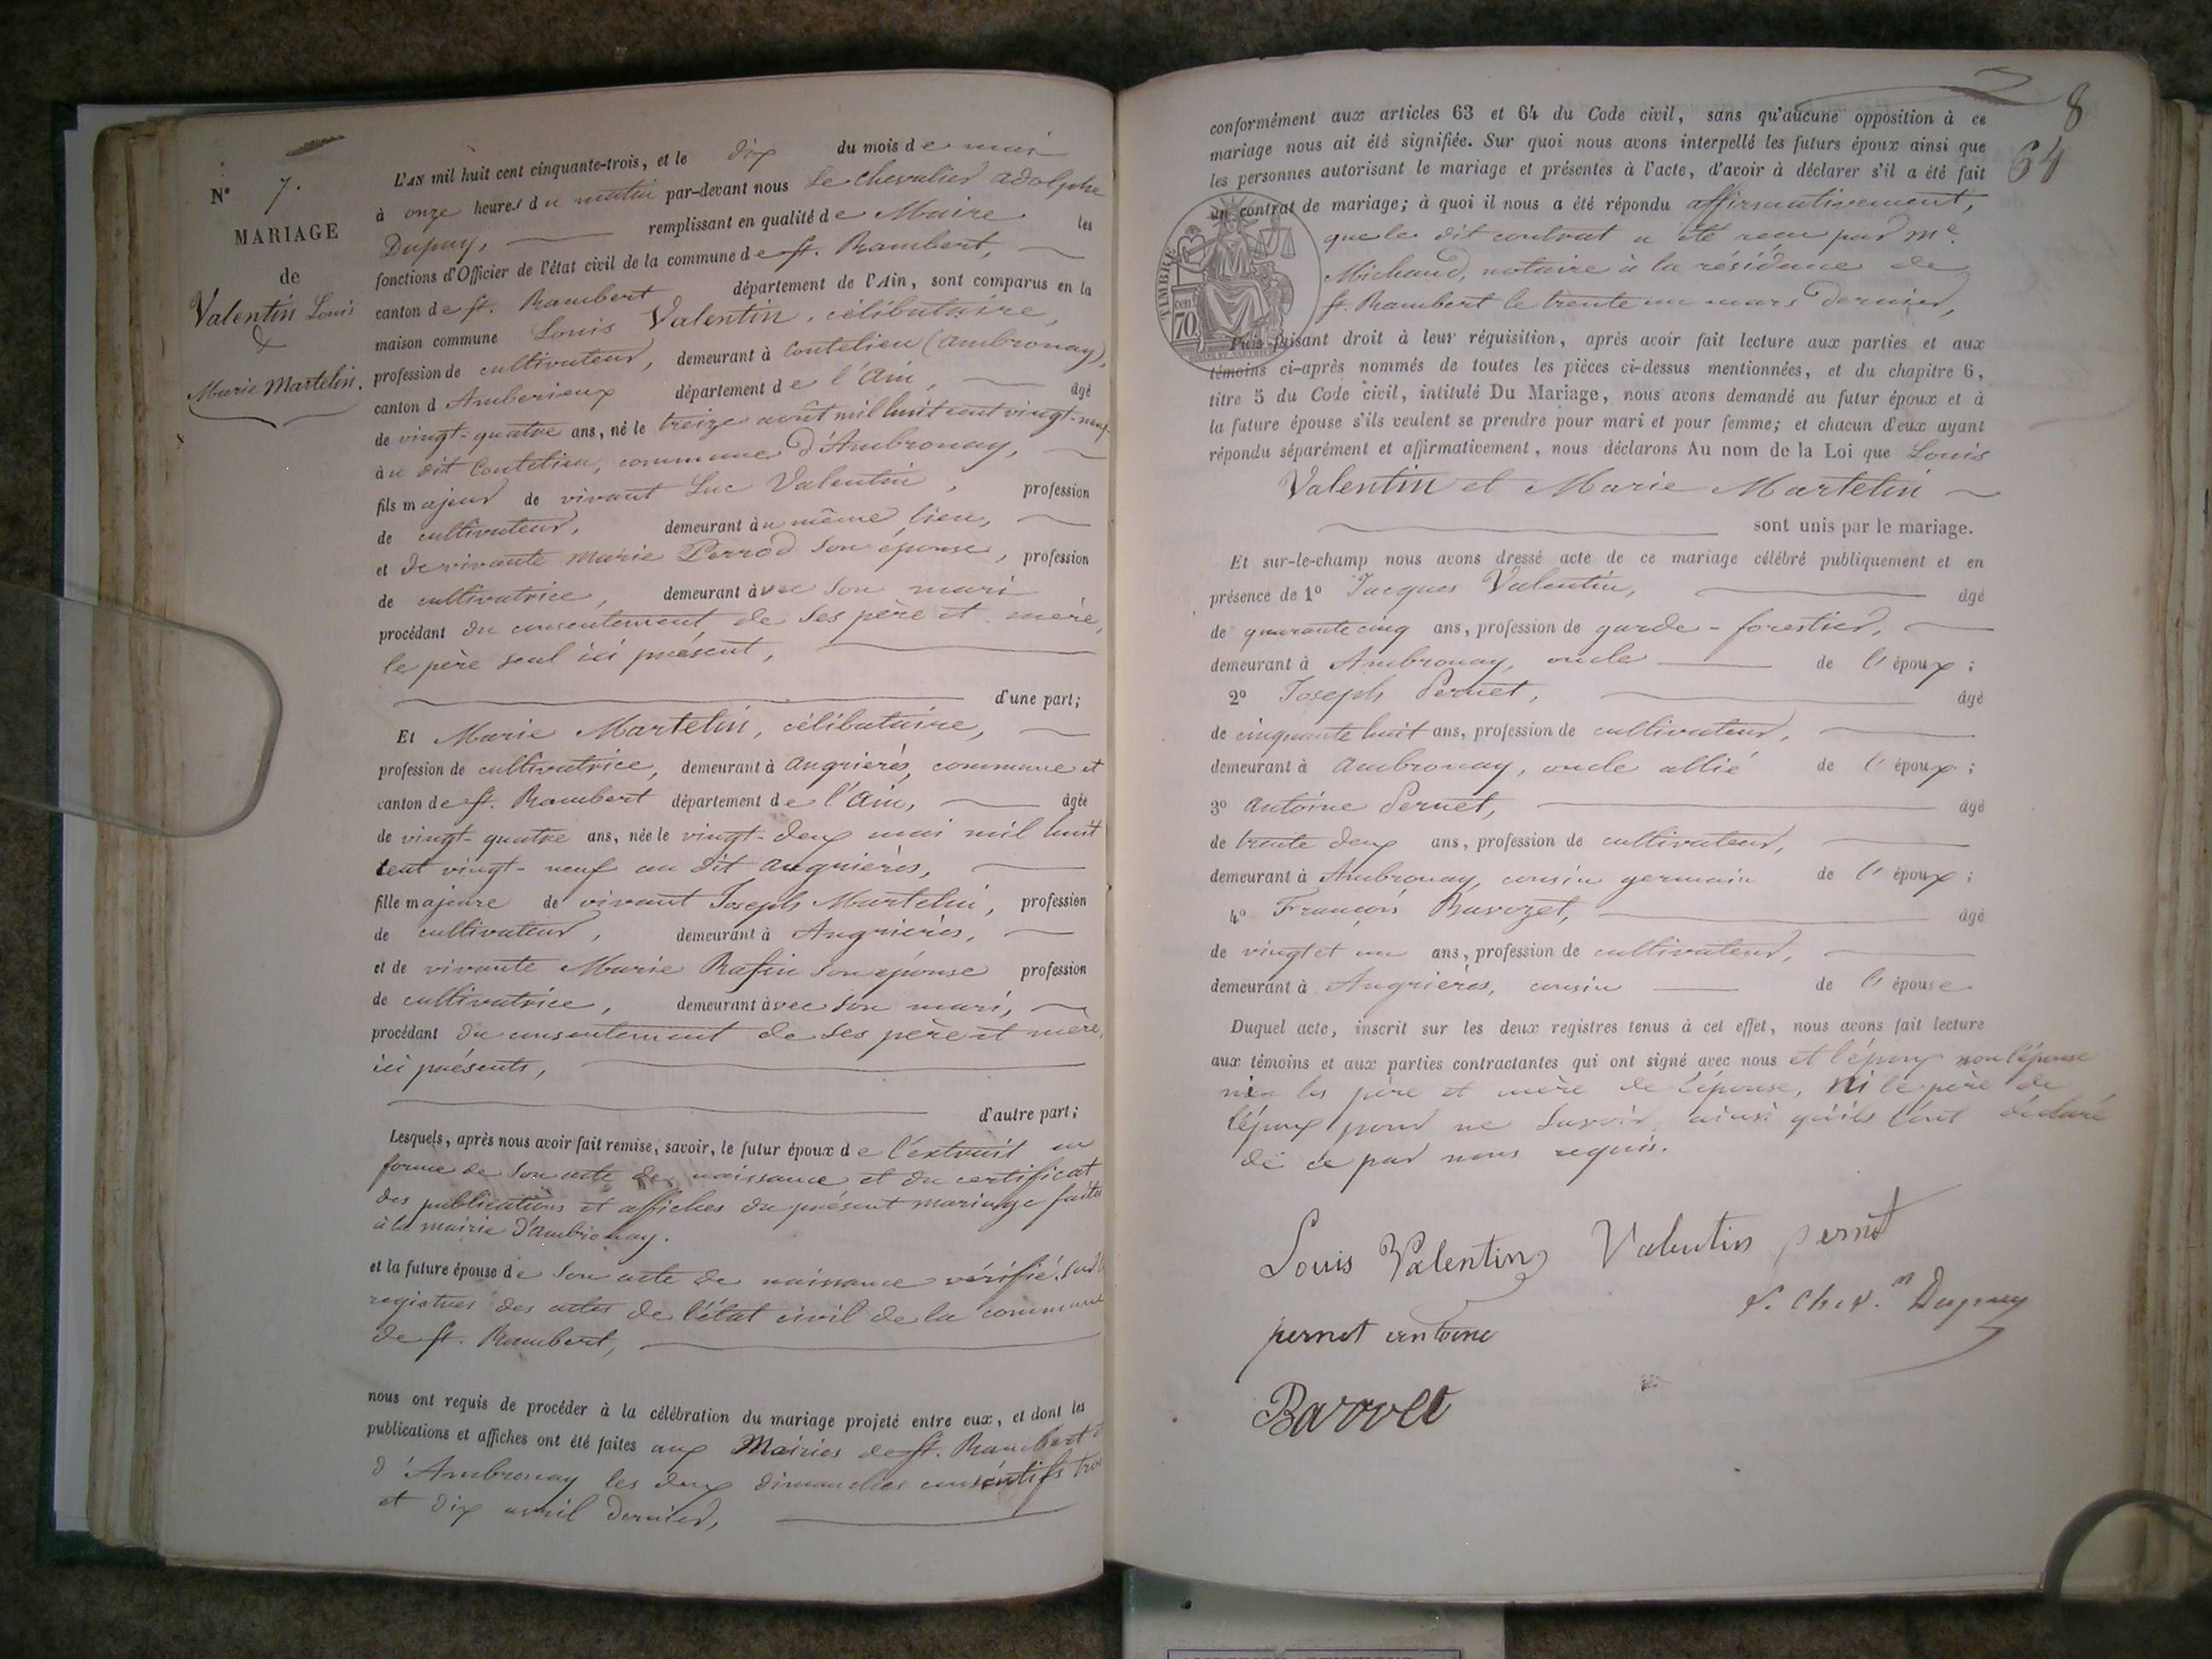 N° 7.
MARIAGE
de
Valentin Louis
&
Marie Martelin.
L'AN mil huit cent cinquante-trois, et le dix du mois de mai
à onze heures du matin par-devant nous Le Chevalier adolphe
Dupuy, remplissant en qualité de Maire les
fonctions d'Officier de l'état civil de la commune de St. Rambert,
canton de St. Rambert département de l'Ain, sont comparus en la
maison commune Louis Valentin, célibataire,
profession de cultivateur, demeurant à Coutelieu (ambronay),
canton d Amberieux département de l'Ain, âgé
de vingt-quatre ans, né le treize août mil huit cent vingt-neuf
à u dit Coutelieu, commune d'Ambronay,
fils majeur de vivant Luc Valentin, profession
de cultivateur, demeurant à u même lieu,
et de vivante Marie Perrod son épouse, profession
de cultivatrice, demeurant avec son mari
procédant du consentement de ses père et mère,
le père seul ici présent,
d'une part;
Et Marie Martelin, célibataire,
profession de cultivatrice, demeurant à angrières, commune et
canton de St. Rambert département de l'Ain, âgée
de vingt-quatre ans, née le vingt-deux mai mil huit
cent vingt-neuf au dit angrières,
fille majeure de vivant Joseph Martelin, profession
de cultivateur, demeurant à Angrières,
et de vivante Marie Rafin son épouse profession
de cultivatrice, demeurant avec son mari,
procédant du consentement de ses père et mère,
ici présents,
d'autre part;
Lesquels, après nous avoir fait remise, savoir, le futur époux de l'extrait en
forme de son acte de naissance et du certificat
des publications et affiches du présent mariage faites
à la mairie d'ambronay.
et la future épouse de son acte de naissance vérifié sur
registres des actes de l'état civil de la commune
de St. Rambert,
nous ont requis de procéder à la célébration du mariage projeté entre eux, et dont les
publications et affiches ont été faites aux Mairies de St. Rambert
d'Ambronay les deux dimanches consécutifs trois
et dix avril dernier,
8
64
conformément aux articles 63 et 64 du Code civil, sans qu'aucune opposition à ce
mariage nous ait été signifiée. Sur quoi nous avons interpellé les futurs époux ainsi que
les personnes autorisant le mariage et présentes à l'acte, d'avoir à déclarer s'il a été fait
un contrat de mariage; à quoi il nous a été répondu affirmativement,
que le dit contrat a été reçu par Me.
Michaud, notaire à la résidence de
St. Rambert le trente un mars dernier,
TIMBRE
cent
70
Puis faisant droit à leur réquisition, après avoir fait lecture aux parties et aux
témoins ci-après nommés de toutes les pièces ci-dessus mentionnées, et du chapitre 6,
titre 5 du Code civil, intitulé Du Mariage, nous avons demandé au futur époux et à
la future épouse s'ils veulent se prendre pour mari et pour femme; et chacun d'eux ayant
répondu séparément et affirmativement, nous déclarons Au nom de la Loi que Louis
Valentin et Marie Martelin
sont unis par le mariage.
Et sur-le-champ nous avons dressé acte de ce mariage célébré publiquement et en
présence de 1° Jacques Valentin, âgé
de quarante cinq ans, profession de garde-forestier,
demeurant à Ambronay, oncle de l'époux;
2° Joseph Pernet, âgé
de cinquante huit ans, profession de cultivateur,
demeurant à Ambronay, oncle allié de l'époux;
3° antoine Pernet, âgé
de trente deux ans, profession de cultivateur,
demeurant à Ambronay, cousin germain de l'époux;
4° François Bavozet, âgé
de vingt et un ans, profession de cultivateur,
demeurant à Angrières, cousin de l'épouse
Duquel acte, inscrit sur les deux registres tenus à cet effet, nous avons fait lecture
aux témoins et aux parties contractantes qui ont signé avec nous et l'époux non l'épouse
ni les père et mère de l'épouse, ni le père de
l'époux pour ne savoir ainsi qu'ils l'ont déclaré
de ce par nous requis.
Louis Valentin Valentin pernet
Dupuy
pernet antoine